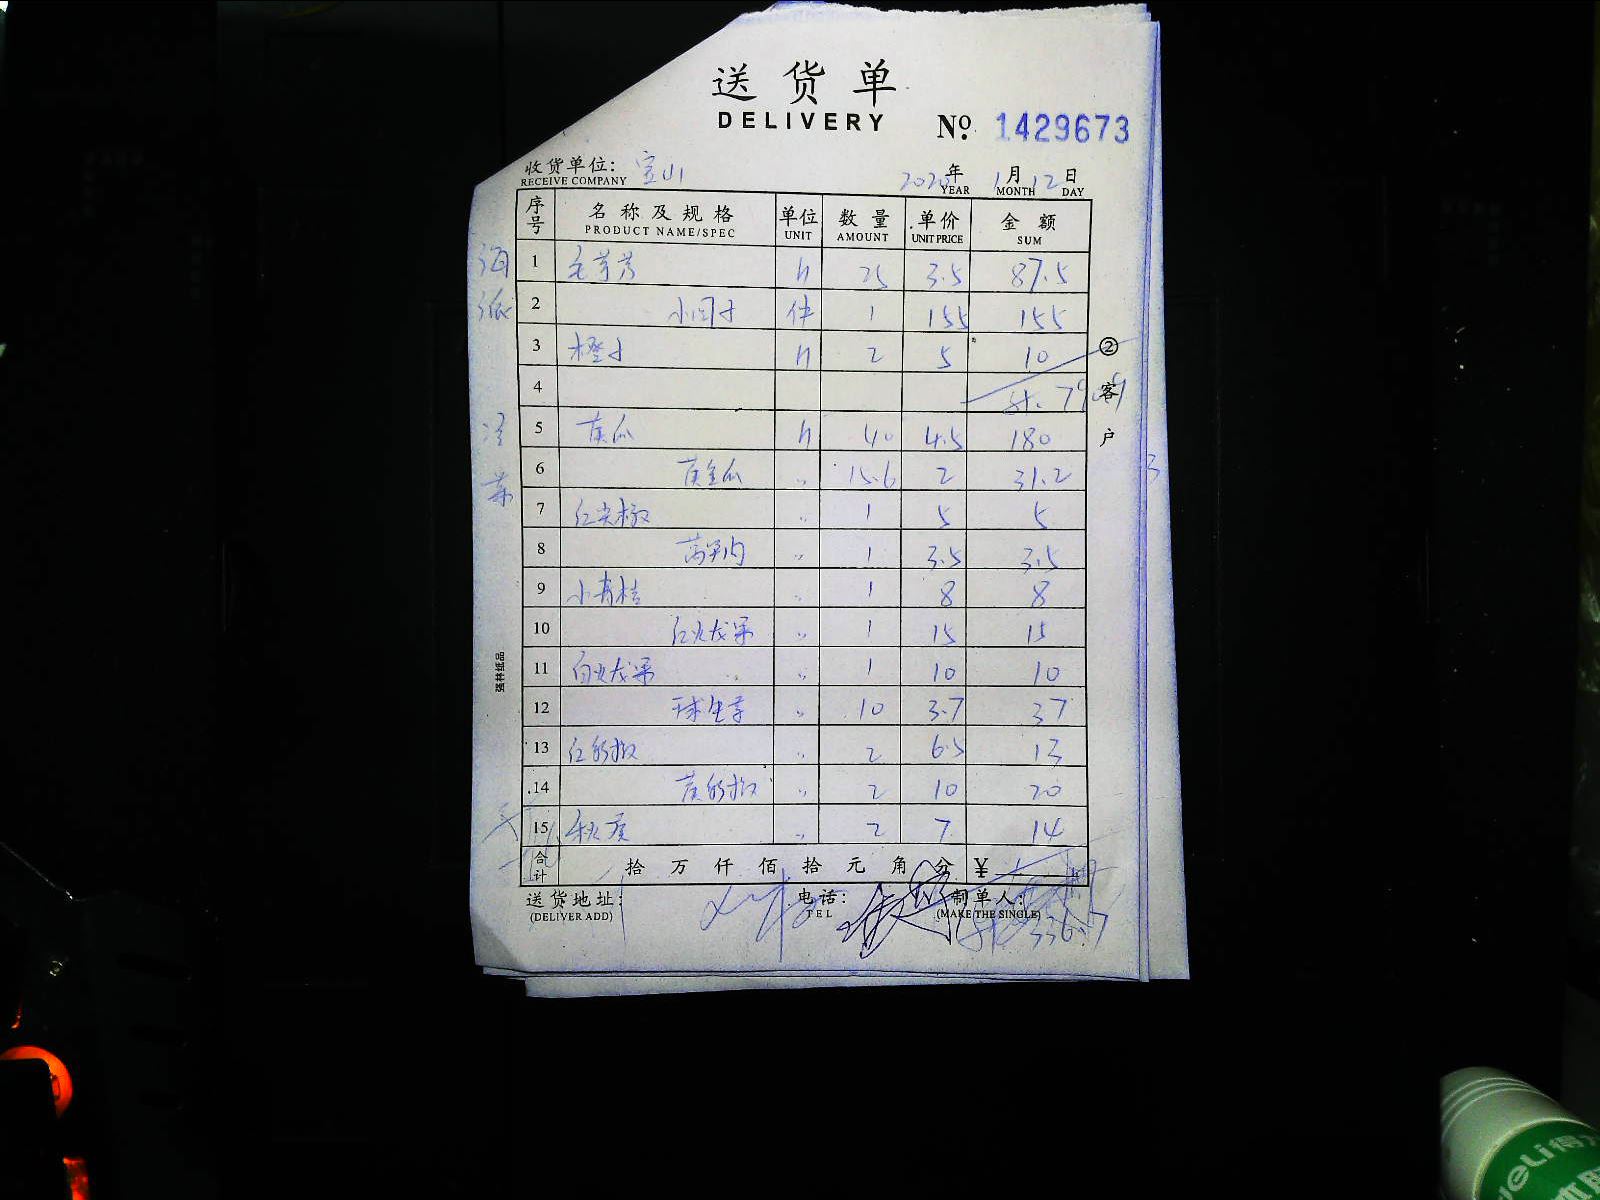 送货单
DELIVERY
№ 1429673
收货单位: 宝山
RECEIVE COMPANY
2020年 1月 12日
YEAR MONTH DAY
序号 名称及规格 单位 数量 单价 金额
PRODUCT NAME/SPEC UNIT AMOUNT UNIT PRICE SUM
海派
1 毛芋艿 斤 25 3.5 87.5
2 件 1 155 155
3 橙子 斤 2 5 10
4
冷菜
5 黄瓜 斤 40 4.5 180
6 黄金瓜 〃 15.6 2 31.2
7 红尖椒 〃 1 5 5
8 〃 1 3.5 3.5
9 小青桔 〃 1 8 8
10 红火龙果 〃 1 15 15
11 白火龙果 〃 1 10 10
12 球生菜 〃 10 3.7 37
13 红彩椒 〃 2 6.5 13
14 黄彩椒 〃 2 10 20
15 秋葵 〃 2 7 14
合计 拾 万 仟 佰 拾 元 角 分 ¥
送货地址: 电话: 制单人:
(DELIVER ADD) TEL (MAKE THE SINGLE)
336.7
②客户
强林纸品
deli 得力